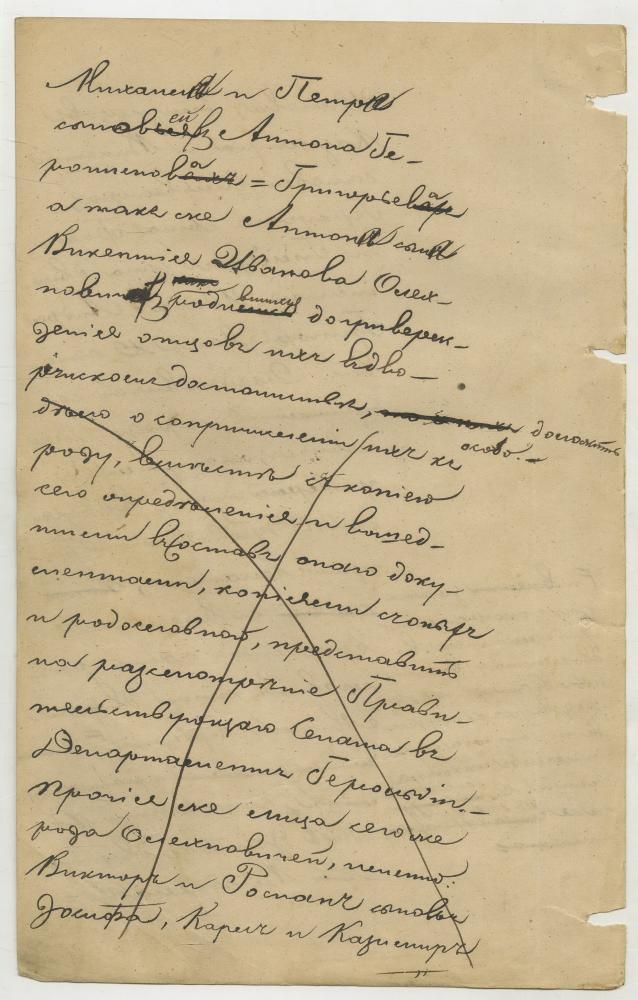 Михаила и Петра
сыновей Антона Ге-
ронимова = Григорьева
а также Антона сына
Викентия Иванова Олех-
новича
до утверж-
дения отцовъ ихъ въ дво-
рянскомъ достоинствѣ, доложить
особо.-
дѣло о сопричисленіи ихъ къ
роду, вмѣстѣ съ копіею
сего опредѣленія и вошед-
шими въ составъ онаго доку-
ментами, копіями съ оныхъ
и родословной, представить
на разсмотрѣніе Прави-
тельствующаго Сената въ
Департаментъ Герольдіи.-
Прочіе же лица сего же
рода Олехновичей, именно:
Викторъ и Романъ сыновья
Іосифа, Карлъ и Казимиръ